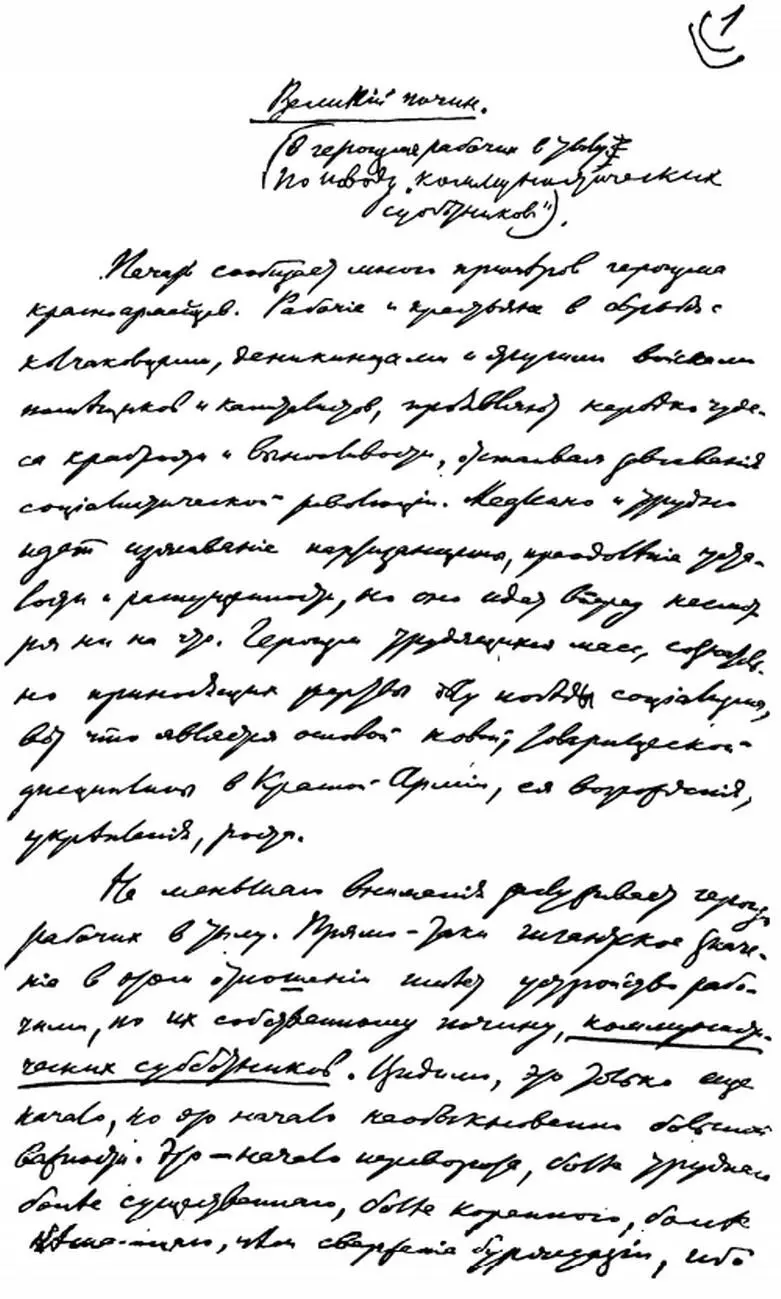 1
Великій почин.
(О героизме рабочих в тылу.
По поводу „коммунистических
субботников").
Печать сообщает много примѣров героизма
красноармейцев. Рабочіе и крестьяне в борьбѣ с
колчаковцами, деникинцами и другими войсками
помѣщиков и капиталистов, проявляют нередко чуде-
са храбрости и выносливости, отстаивая завоеванія
соціалистической революціи. Медленно и трудно
идет изживаніе партизанщины, преодолѣніе уста-
лости и распущенности, но оно идет вперед несмот-
ря ни на что. Героизм трудящихся масс, сознатель-
но приносящих жертвы дѣлу побѣды соціализма,
вот что является основой новой, товарищеской
дисциплины в Красной Арміи, ея возрожденія,
укрѣпленія, роста.
Не меньшаго вниманія заслуживает героизм
рабочих в тылу. Прямо-таки гигантское значе-
ніе в этом отношеніи имѣет устройство рабо-
чими, по их собственному почину, коммунисти-
ческих субботников. Видимо, это только еще
начало, но это начало необыкновенно большой
важности. Это – начало переворота, болѣе труднаго
болѣе существеннаго, болѣе коренного, болѣе
рѣшающаго, чѣм сверженіе буржуазіи, ибо